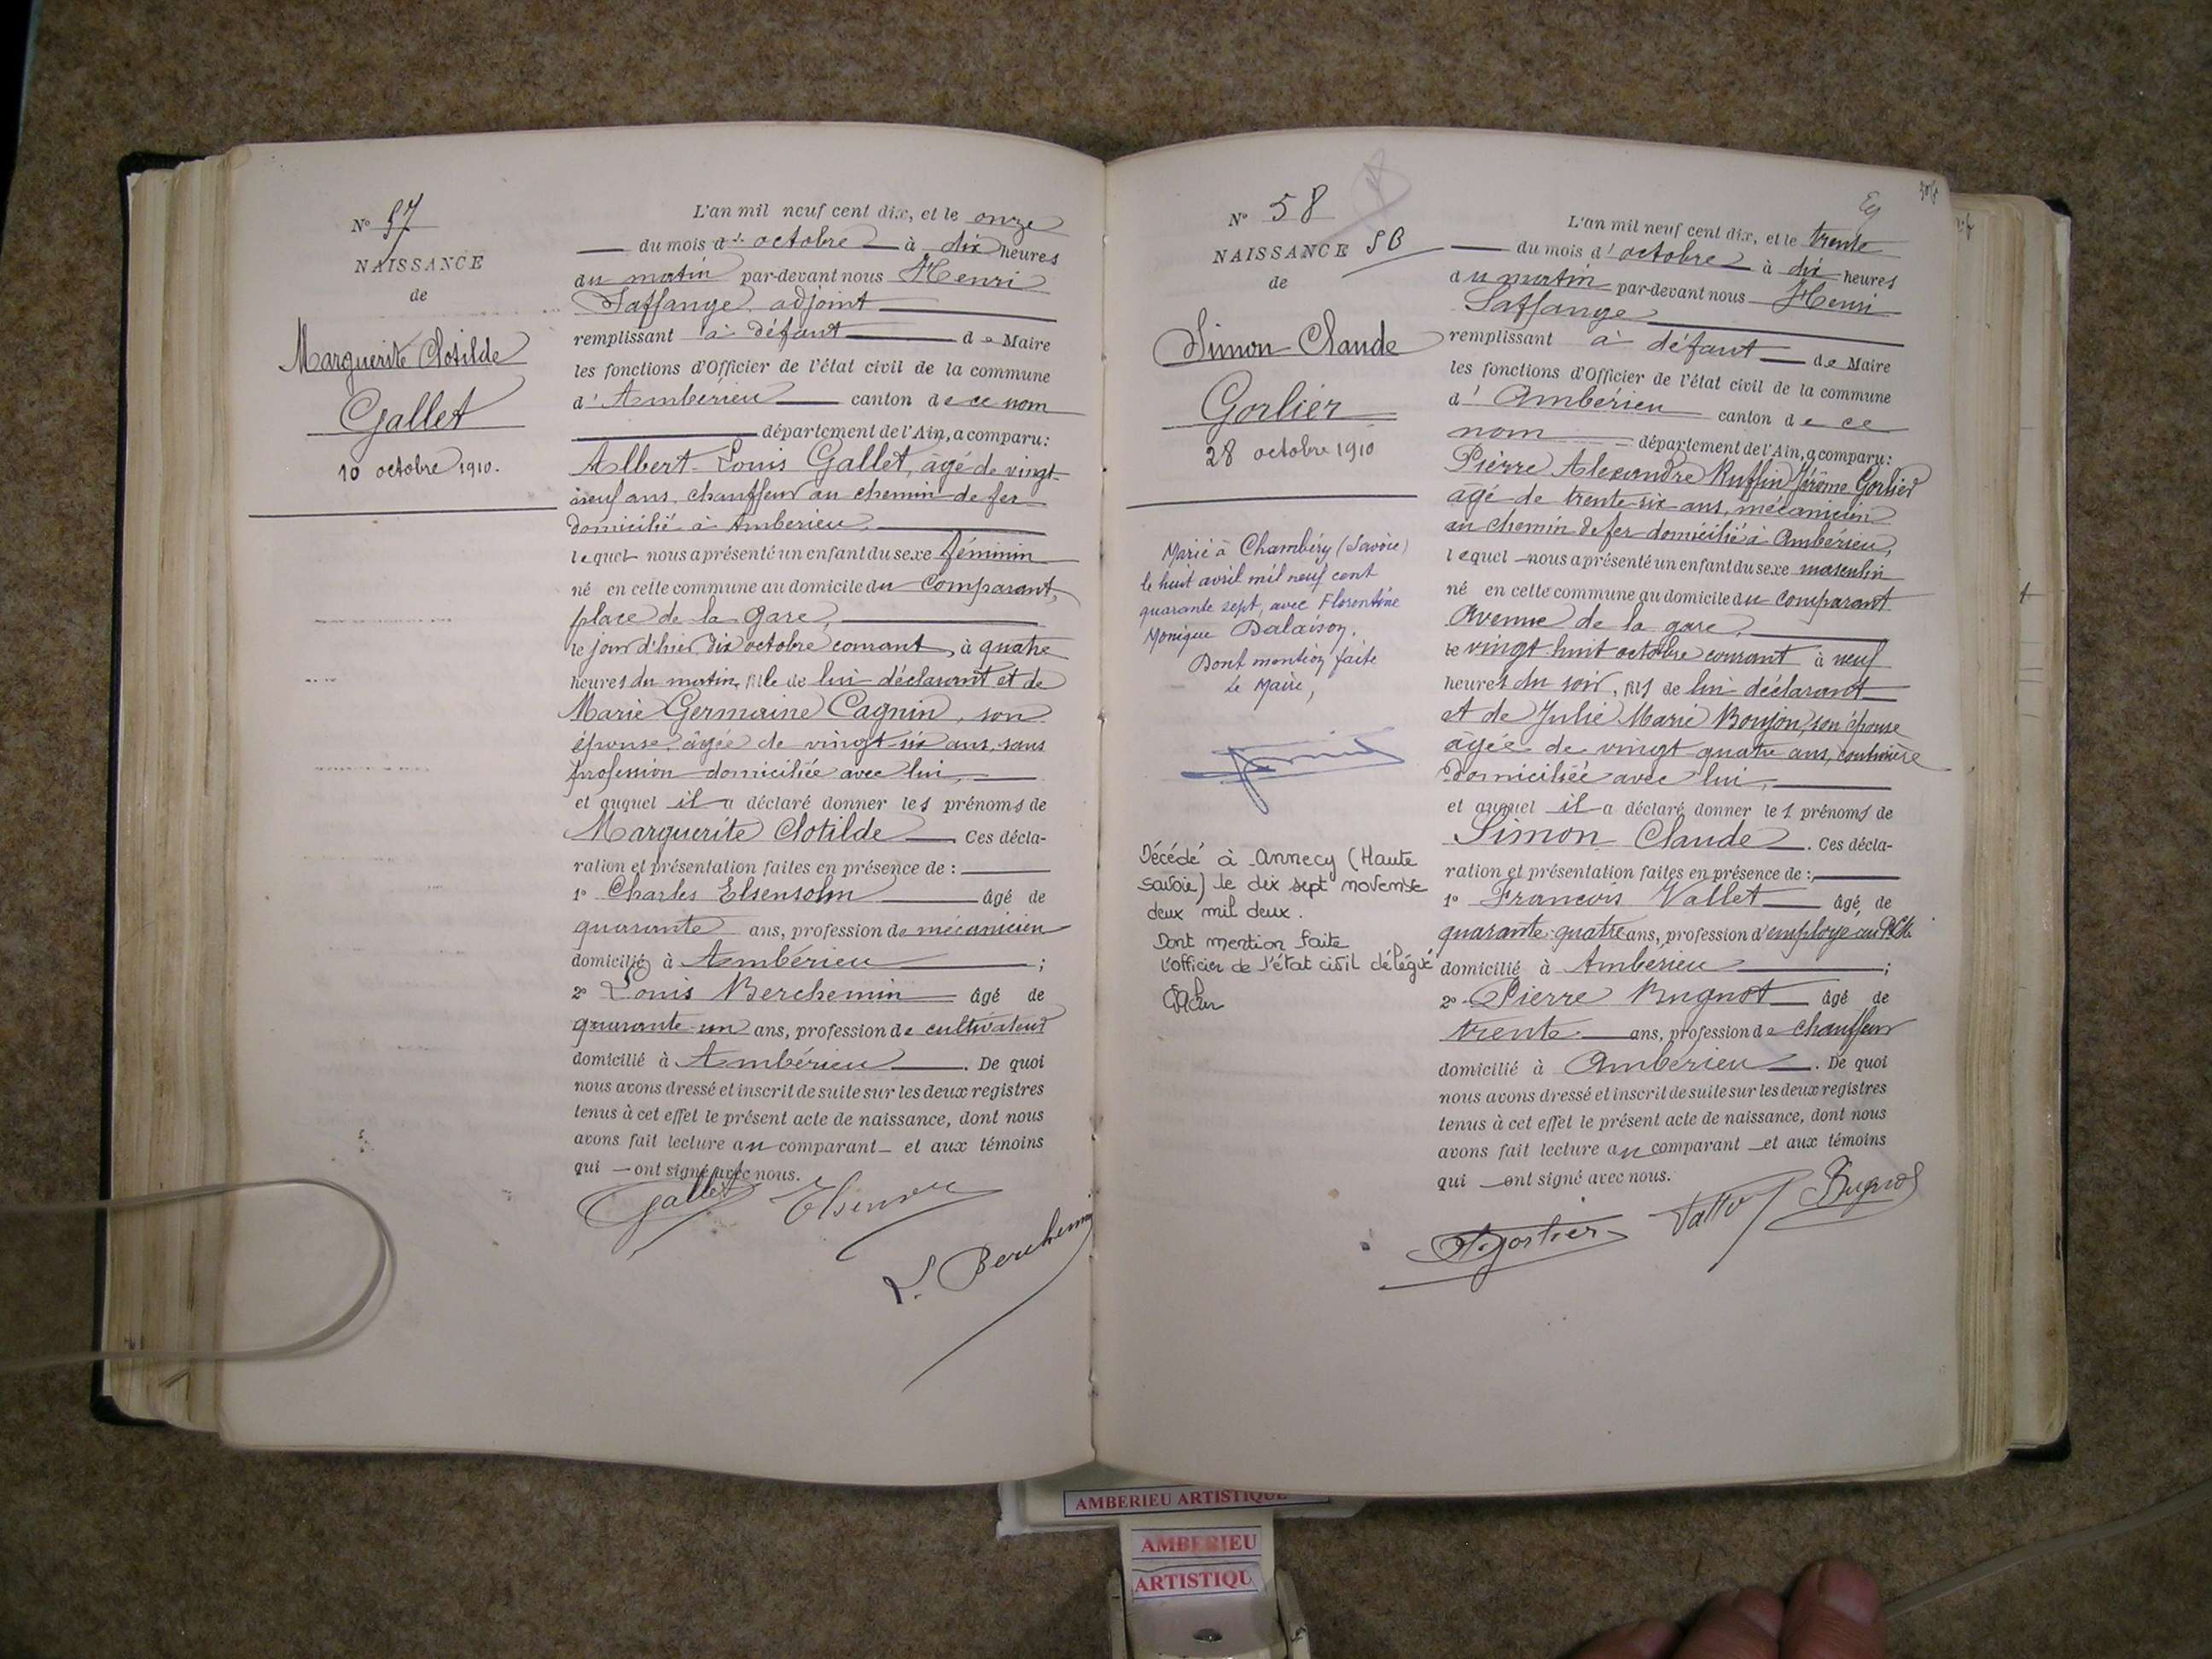 N° 57
NAISSANCE
de
Marguerite Clotilde
Gallet
10 octobre 1910.
L'an mil neuf cent dix, et le onze
du mois d' octobre à dix heures
du matin par-devant nous Henri
Laffange adjoint
remplissant à défaut de Maire
les fonctions d'Officier de l'état civil de la commune
d' Ambérieu canton de ce nom
département de l'Ain, a comparu:
Albert Louis Gallet, âgé de vingt-
neuf ans, chauffeur au chemin de fer
domicilié à Ambérieu,
lequel nous a présenté un enfant du sexe féminin
né en cette commune au domicile du comparant,
place de la gare,
le jour d'hier dix octobre courant, à quatre
heures du matin, fille de lui déclarant et de
Marie Germaine Cagnin, son
épouse âgée de vingt-six ans, sans
profession domiciliée avec lui,
et auquel il a déclaré donner les prénoms de
Marguerite Clotilde. Ces décla-
ration et présentation faites en présence de :
1° Charles Elsensohn âgé de
quarante ans, profession de mécanicien
domicilié à Ambérieu ;
2° Louis Berchemin âgé de
quarante-un ans, profession de cultivateur
domicilié à Ambérieu. De quoi
nous avons dressé et inscrit de suite sur les deux registres
tenus à cet effet le présent acte de naissance, dont nous
avons fait lecture au comparant et aux témoins
qui ont signé avec nous.
Gallet
L. Berchemin
N° 58
NAISSANCE 58
de
Simon Claude
Gorlier
28 octobre 1910
Marié à Chambéry (Savoie)
le huit avril mil neuf cent
quarante sept, avec Florentine
Monique Dalaison.
Dont mention faite
Le Maire,
Décédé à Annecy (Haute
Savoie) le dix sept novembre
deux mil deux.
Dont mention faite
l'officier de l'état civil délégué
L'an mil neuf cent dix, et le trente
du mois d' octobre à dix heures
du matin par-devant nous Henri
Laffange
remplissant à défaut de Maire
les fonctions d'Officier de l'état civil de la commune
d' Ambérieu canton de ce
nom département de l'Ain, a comparu:
Pierre Alexandre Ruffin Jérôme Gorlier
âgé de trente-six ans, mécanicien
au chemin de fer domicilié à Ambérieu,
lequel nous a présenté un enfant du sexe masculin
né en cette commune au domicile du comparant
Avenue de la gare,
le vingt-huit octobre courant à neuf
heures du soir, fils de lui déclarant
et de Julie Marie Boujon, son épouse
âgée de vingt quatre ans, couturière
domiciliée avec lui,
et auquel il a déclaré donner les prénoms de
Simon Claude. Ces décla-
ration et présentation faites en présence de :
1° François Vallet âgé de
quarante-quatre ans, profession d'employé au
domicilié à Ambérieu ;
2° Pierre Bugnot âgé de
trente ans, profession de chauffeur
domicilié à Ambérieu. De quoi
nous avons dressé et inscrit de suite sur les deux registres
tenus à cet effet le présent acte de naissance, dont nous
avons fait lecture au comparant et aux témoins
qui ont signé avec nous.
Gorlier
AMBERIEU ARTISTIQUE
AMBERIEU
ARTISTIQU